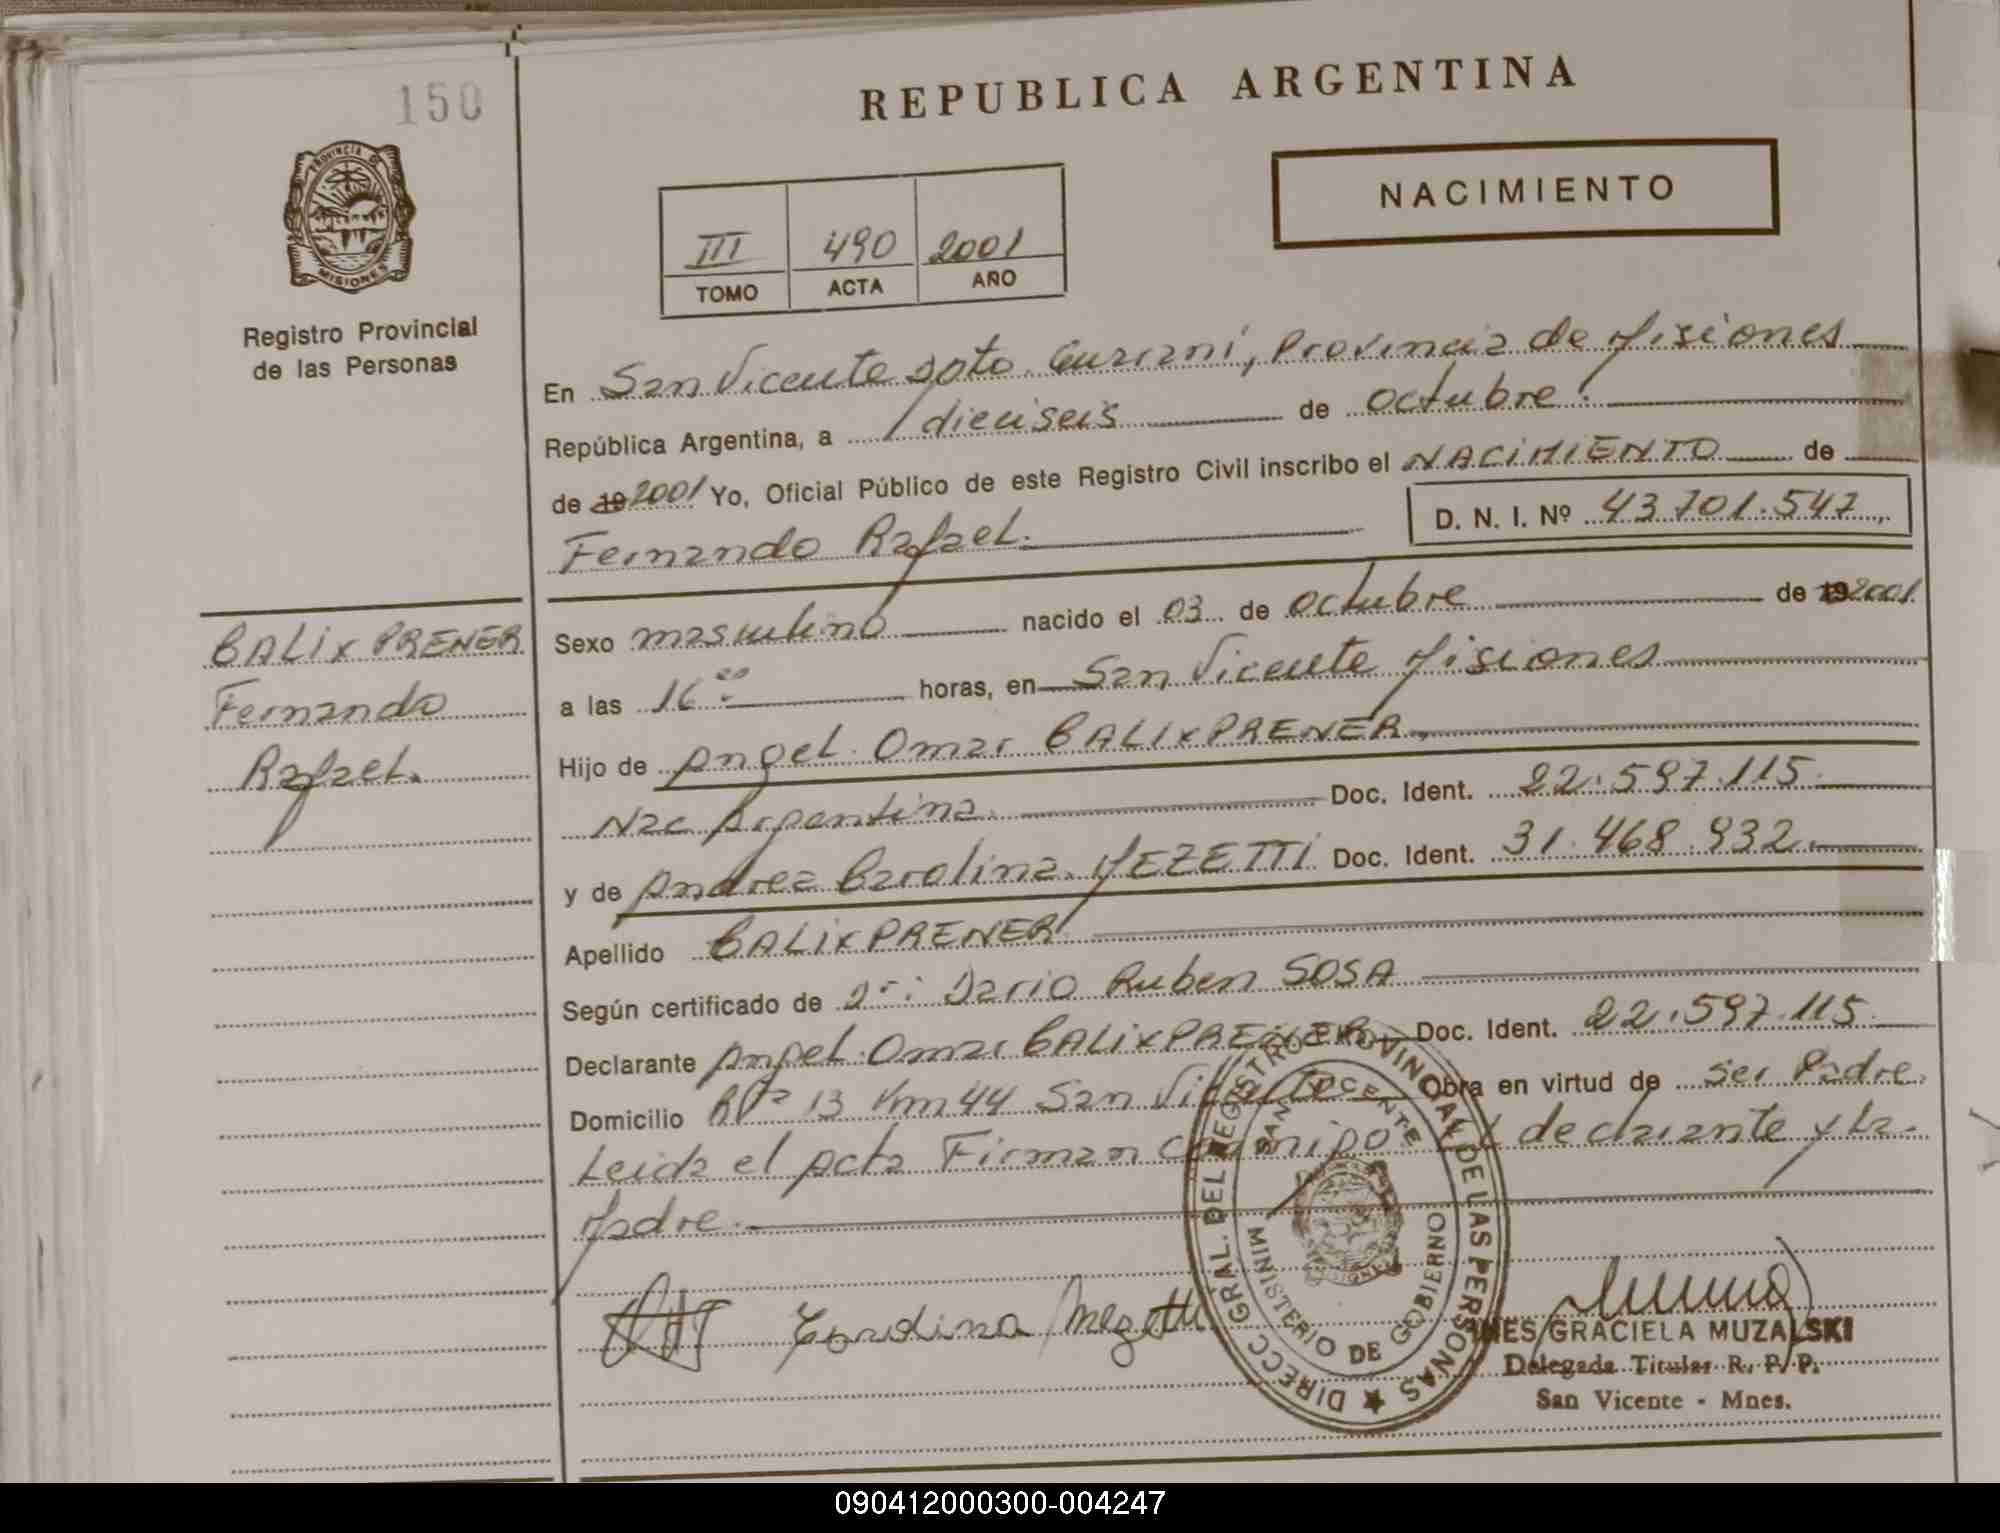 150
REPUBLICA ARGENTINA
PROVINCIA DE
MISIONES
NACIMIENTO
III 490 2001
TOMO ACTA AÑO
Registro Provincial
de las Personas
En San Vicente Dpto. Guarani, Provincia de Misiones
República Argentina, a dieciseis de octubre.
de 19 2001 Yo, Oficial Público de este Registro Civil inscribo el NACIMIENTO de
Fernando Rafael. D. N. I. Nº 43.701.547
BALIXPRENER
Fernando
Rafael.
Sexo masculino nacido el 03 de octubre de 19 2001
a las 16 horas, en San Vicente Misiones
Hijo de Angel Omar BALIXPRENER
Nac Argentina. Doc. Ident. 22.597.115.
y de Andrea Carolina MEZETTI Doc. Ident. 31.468.932.
Apellido BALIXPRENER
Según certificado de Dr: Dario Ruben SOSA
Declarante Angel Omar BALIXPRENER Doc. Ident. 22.597.115.
Domicilio 13 Km 44 San Vicente Obra en virtud de ser Padre.
Leida el Acta Firman conmigo declarante y la
Madre.
DIRECC GRAL. DEL REGISTRO PROVINCIAL DE LAS PERSONAS
SAN VICENTE
MINISTERIO DE GOBIERNO
Carolina Mezetti
INES GRACIELA MUZALSKI
Delegada Titular R. P. P.
San Vicente - Mnes.
090412000300-004247